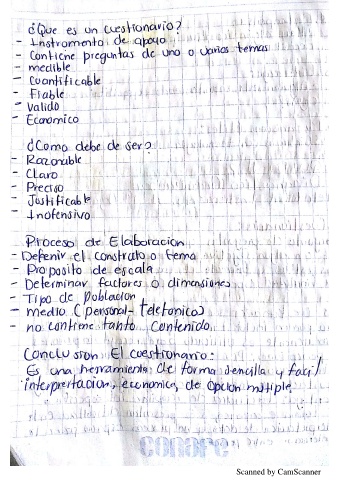 ¿Que es un cuestionario?
- Instromento de apoyo
- Contiene preguntas de uno o varios temas
- medible
- Cuantificable
- Fiable
- Valido
- Economico
¿Como debe de ser?
- Razonable
- Claro
- Preciso
- Justificable
- Inofensivo
Proceso de Elaboracion
- Defenir el constrato o tema
- Proposito de escala
- Determinar factores o dimensiones
- Tipo de Poblacion
- medio (personal- telefonico)
- no contiene tanto Contenido
Conclusion El cuestionario:
Es una herramienta de forma sencilla y facil
interpretacion, economica, de opcion multiple
conare
Scanned by CamScanner